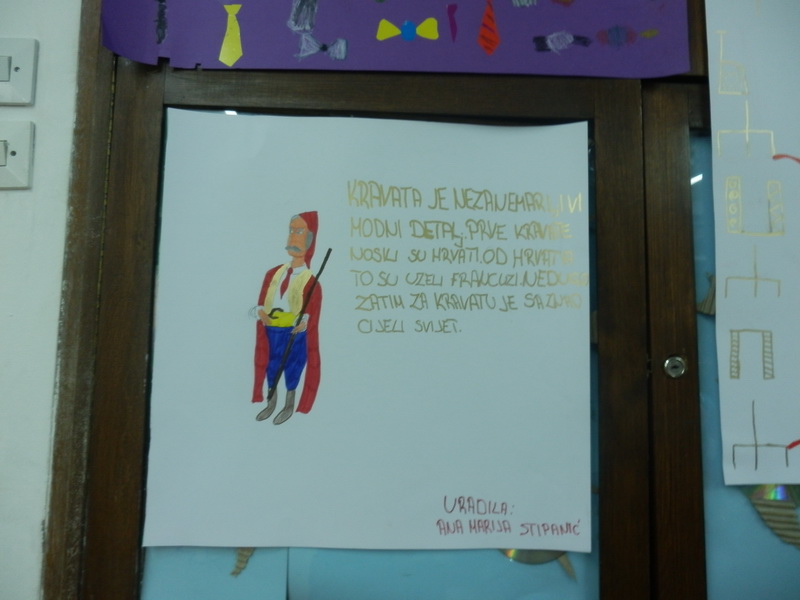 KRAVATA JE NEZANEMARLJIVI
MODNI DETALJ. PRVE KRAVATE
NOSILI SU HRVATI. OD HRVATA
TO SU UZELI FRANCUZI. NEDUGO
ZATIM ZA KRAVATU JE SAZNAO
CIJELI SVIJET.
URADILA:
ANA MARIJA STIPANIĆ